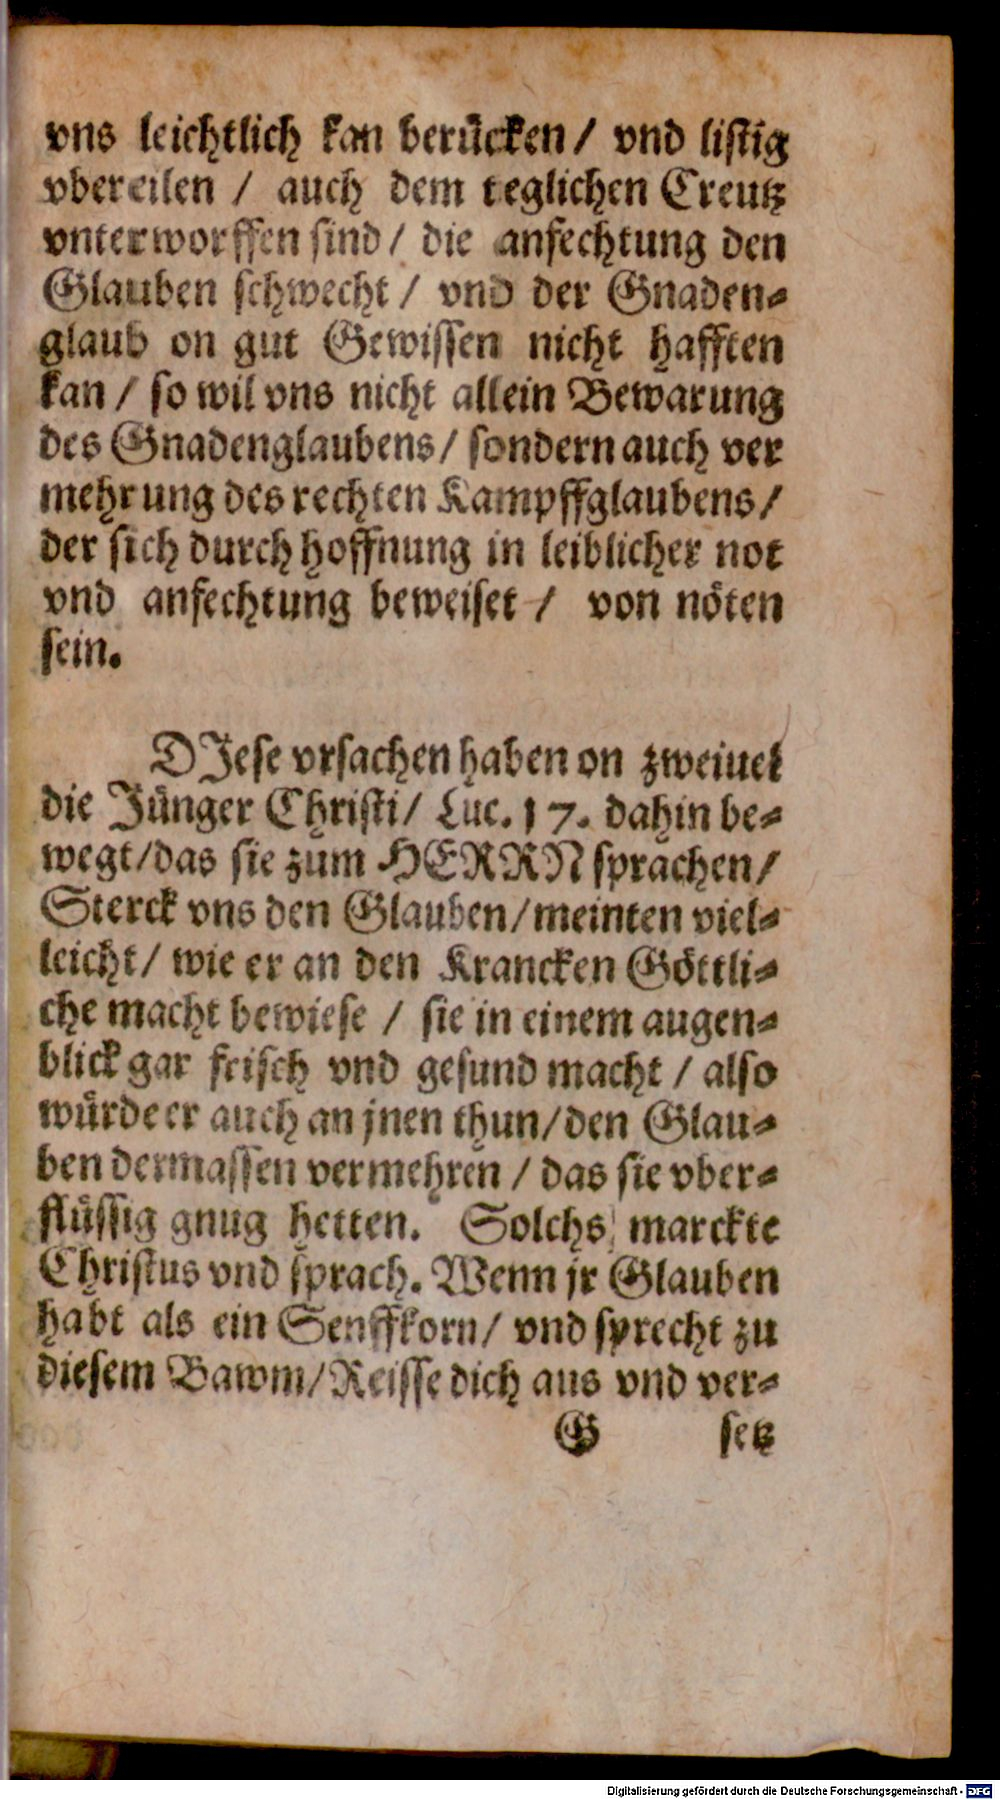 vns leichtlich kan berücken / vnd listig
vbereilen / auch dem teglichen Creutz
vnterworffen sind / die anfechtung den
Glauben schwecht / vnd der Gnaden-
glaub on gut Gewissen nicht hafften
kan / so wil vns nicht allein Bewarung
des Gnadenglaubens / sondern auch ver
mehrung des rechten Kampffglaubens /
der sich durch hoffnung in leiblicher not
vnd anfechtung beweiset / von nöten
sein.
DJese vrsachen haben on zweiuel
die Jünger Christi / Luc. 17. dahin be-
wegt / das sie zum HERRN sprachen /
Sterck vns den Glauben / meinten viel-
leicht / wie er an den Krancken Göttli-
che macht bewiese / sie in einem augen-
blick gar frisch vnd gesund macht / also
würde er auch an jnen thun / den Glau-
ben dermassen vermehren / das sie vber-
flüssig gnug hetten. Solchs marckte
Christus vnd sprach. Wenn jr Glauben
habt als ein Senffkorn / vnd sprecht zu
diesem Bawm / Reisse dich aus vnd ver-
G setz
Digitalisierung gefördert durch die Deutsche Forschungsgemeinschaft - DFG